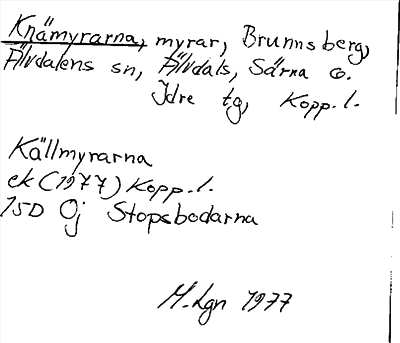 Knämyrarna, myrar, Brunnsberg,
Älvdalens sn, Älvdals, Särna o.
Idre tg, Kopp. l.
Källmyrarna
ek (1977) Kopp. l.
15D 0j Stopsbodarna
M. Lgn 1977